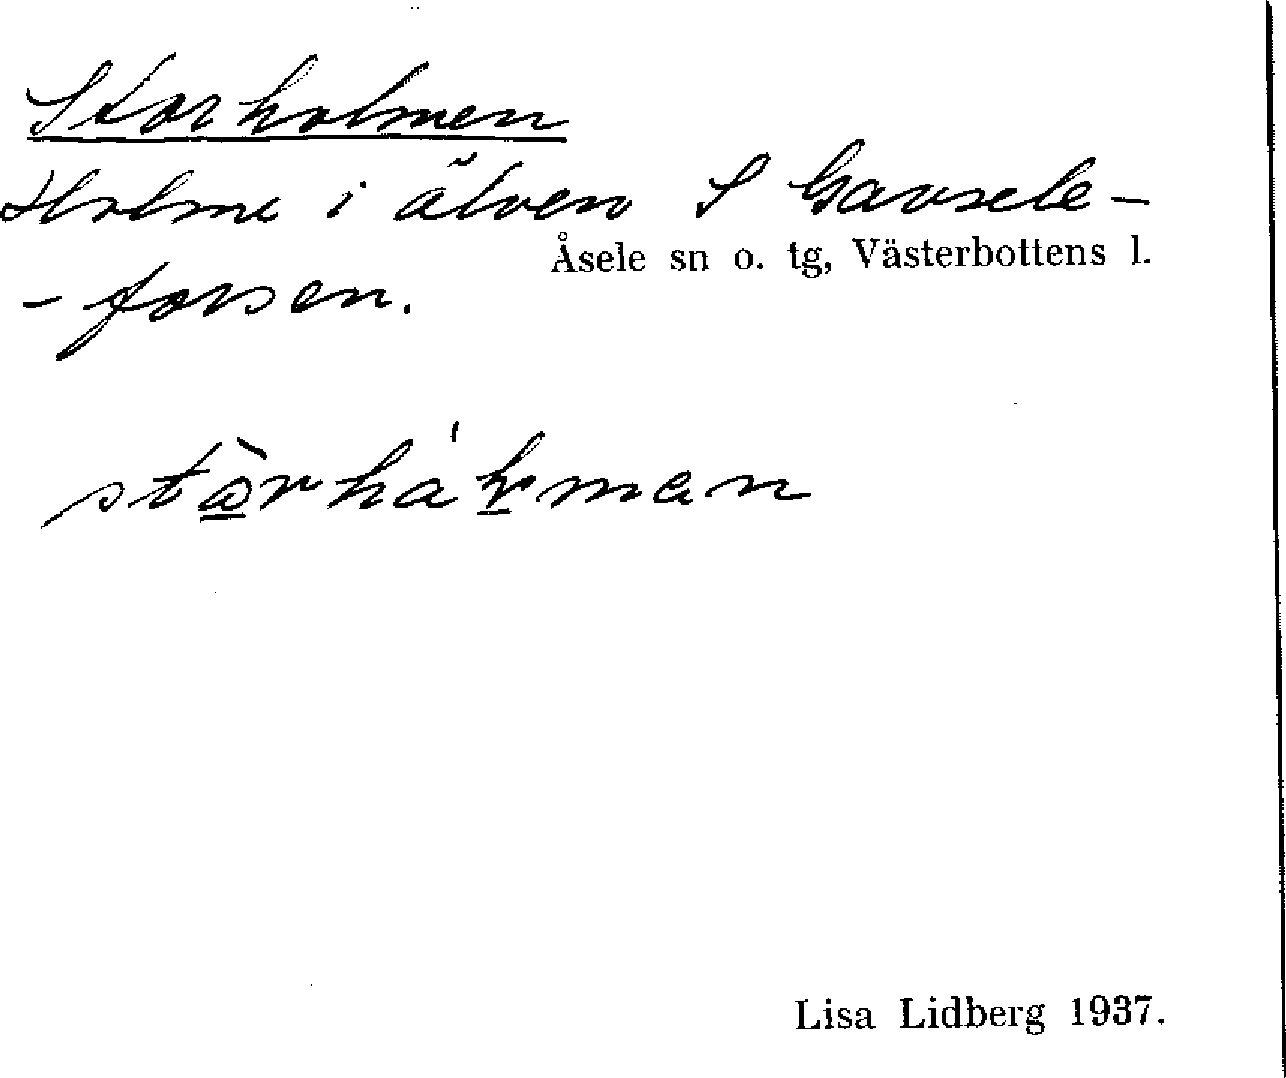 Storholmen
Holme i älven S Gavsele-
Åsele sn o. tg, Västerbottens l.
-forsen.
Lisa Lidberg 1937.